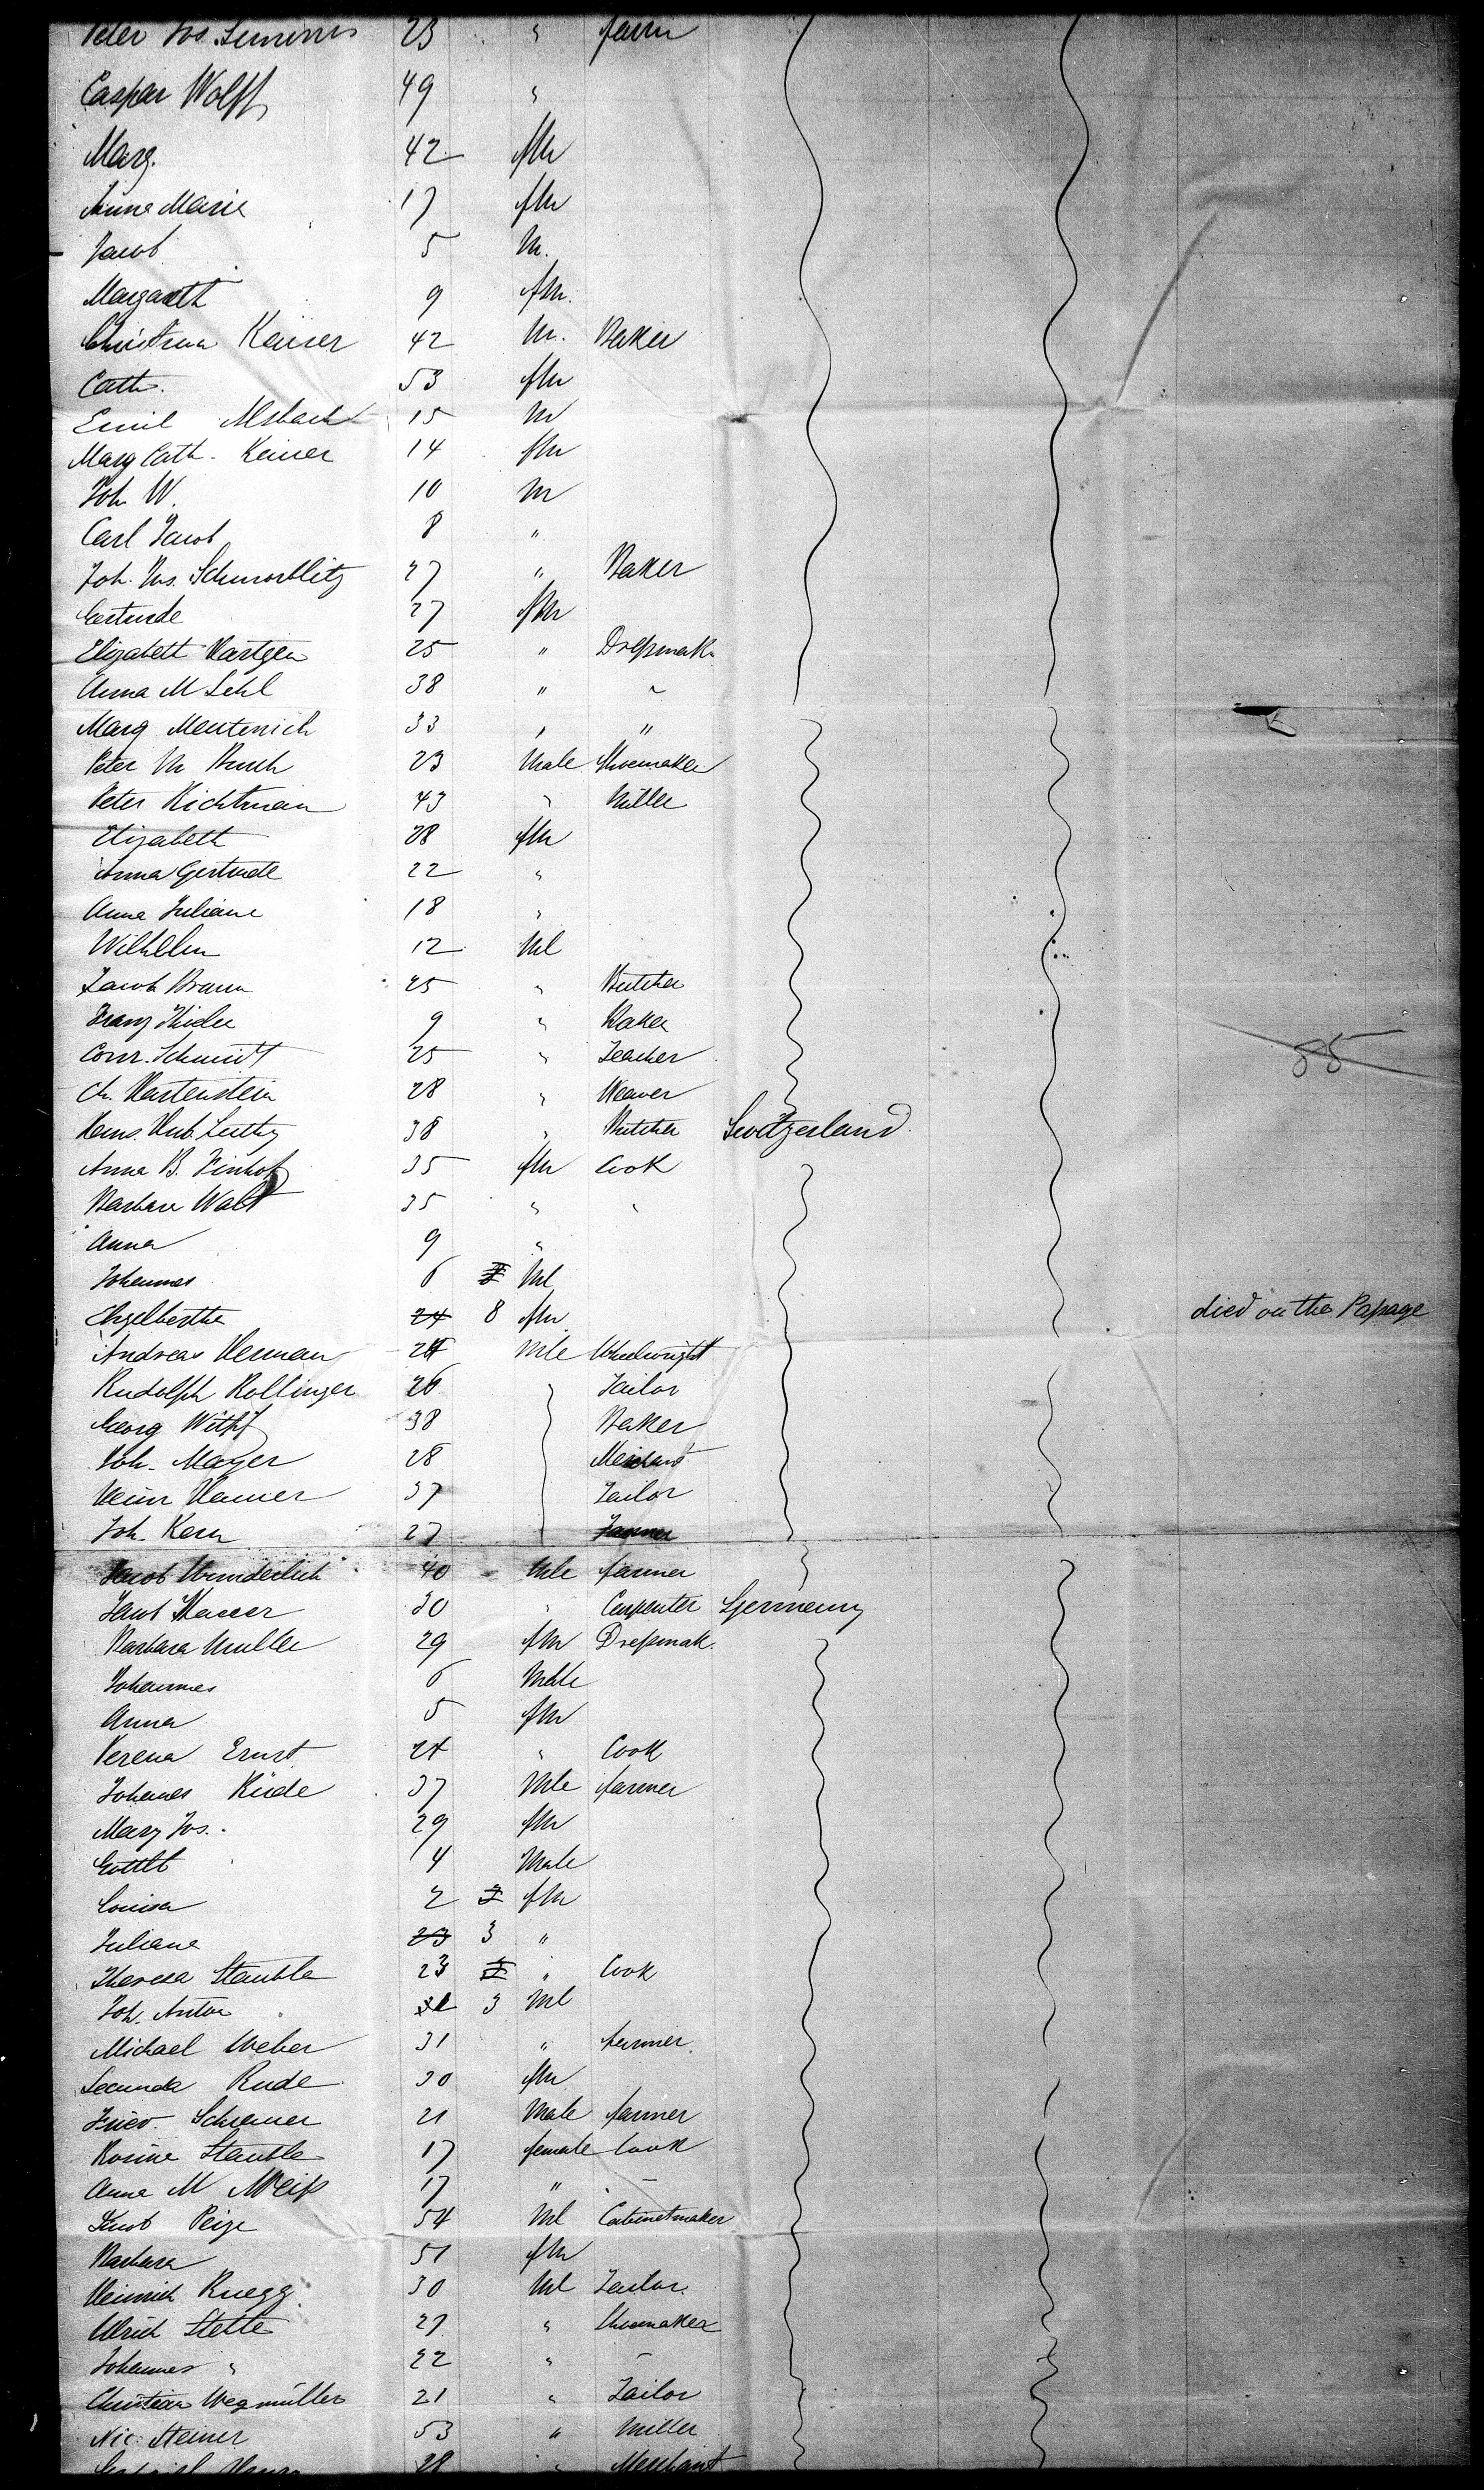 Peter Jos. Simmons 23 " farm
Caspar Wolff 49 "
Marg. 42 fm
Anna Marie 17 fm
Jacob 5 M.
Margareth 9 fm.
Christian Keiser 42 M. Baker
Cath. 53 fm
Emil Alsbach 15 M
Marg Cath. Keiser 14 fm
Joh W. 10 M
Carl Jacob 8 "
Joh. 27 " Baker
Gertrude 27 fm
Elizabeth Hartgen 25 " Dressmak.
Anna M Sehl 38 " "
Marg Meutenich 33 " "
Peter M 23 Male Shoemaker
Peter Richtman 43 " Miller
Elizabeth 38 fm
Anna Gertrude 22 "
Anna Juliane 18 "
Wilhelm 12 Ml
Jacob Braun 25 " Butcher
Franz 9 " Baker
Conr. Schmidt 25 " Teacher 85
Ch. Hartenstein 28 " Weaver
Hub. Luthy 38 " Butcher Switzerland
Anna B. 35 fm Cook
Barbara Walt 35 " "
Anna 9 "
Johannes 6 Ml
Engelbertha 24 8 fm died on the Passage
Andreas Herman 24 Mle Wheelwright
Rudolph Bollinger 26 Tailor
Georg 38 Baker
Joh. Mayer 28 Merchant
Heinr 37 Tailor
Joh. Kern 27 Farmer
Jacob Wunderlich 40 Mle farmer
Jacob 30 " Carpenter Germany
Barbara Muller 29 fm Dressmak.
Johannes 6 Male
Anna 5 fm
Verena Ernst 24 " Cook
Johannes Rüde 37 Mle farmer
Mary Jos. 29 fm
Gottlb 4 Male
Louisa 2 fm
Juliane 23 3 "
Theresa Stauble 23 " Cook
Joh. Anton 3 Ml
Michael Weber 31 " farmer
Secunda Rude 30 fm
Fried. Schreiner 21 Male farmer
Rosine Stauble 17 female Cook
Anna M Weiss 17 " "
Jacob 54 Ml Cabinetmaker
Barbara 51 fm
Heinrich Ruegg 30 Ml Tailor.
Ulrich Stette 27 " Shoemaker
Johannes " 22 " "
Christian Wegmüller 21 " Tailor
Nic. Steiner 53 " Miller
28 " Merchant